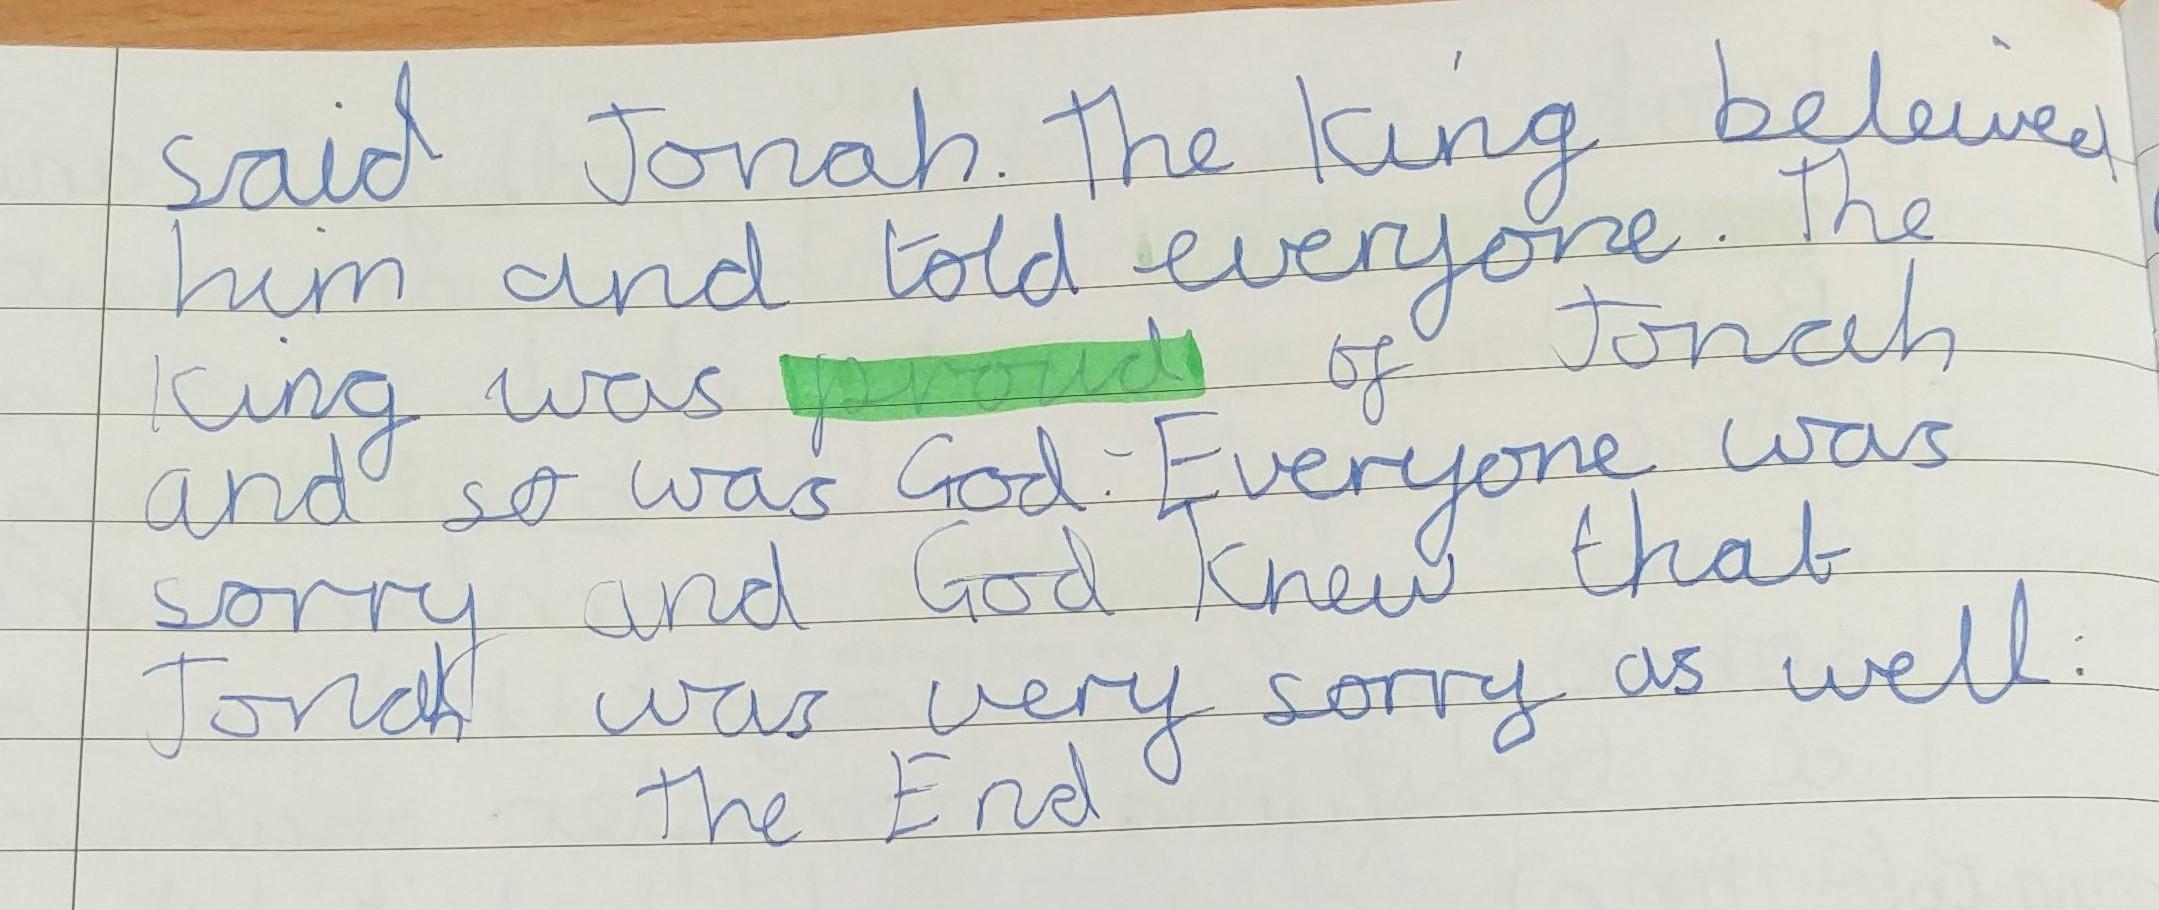 said Jonah. The King beleived
him and told everyone. The
King was proud of Jonah
and so was God. Everyone was
sorry and God Knew that
Jonah was very sorry as well.
The End